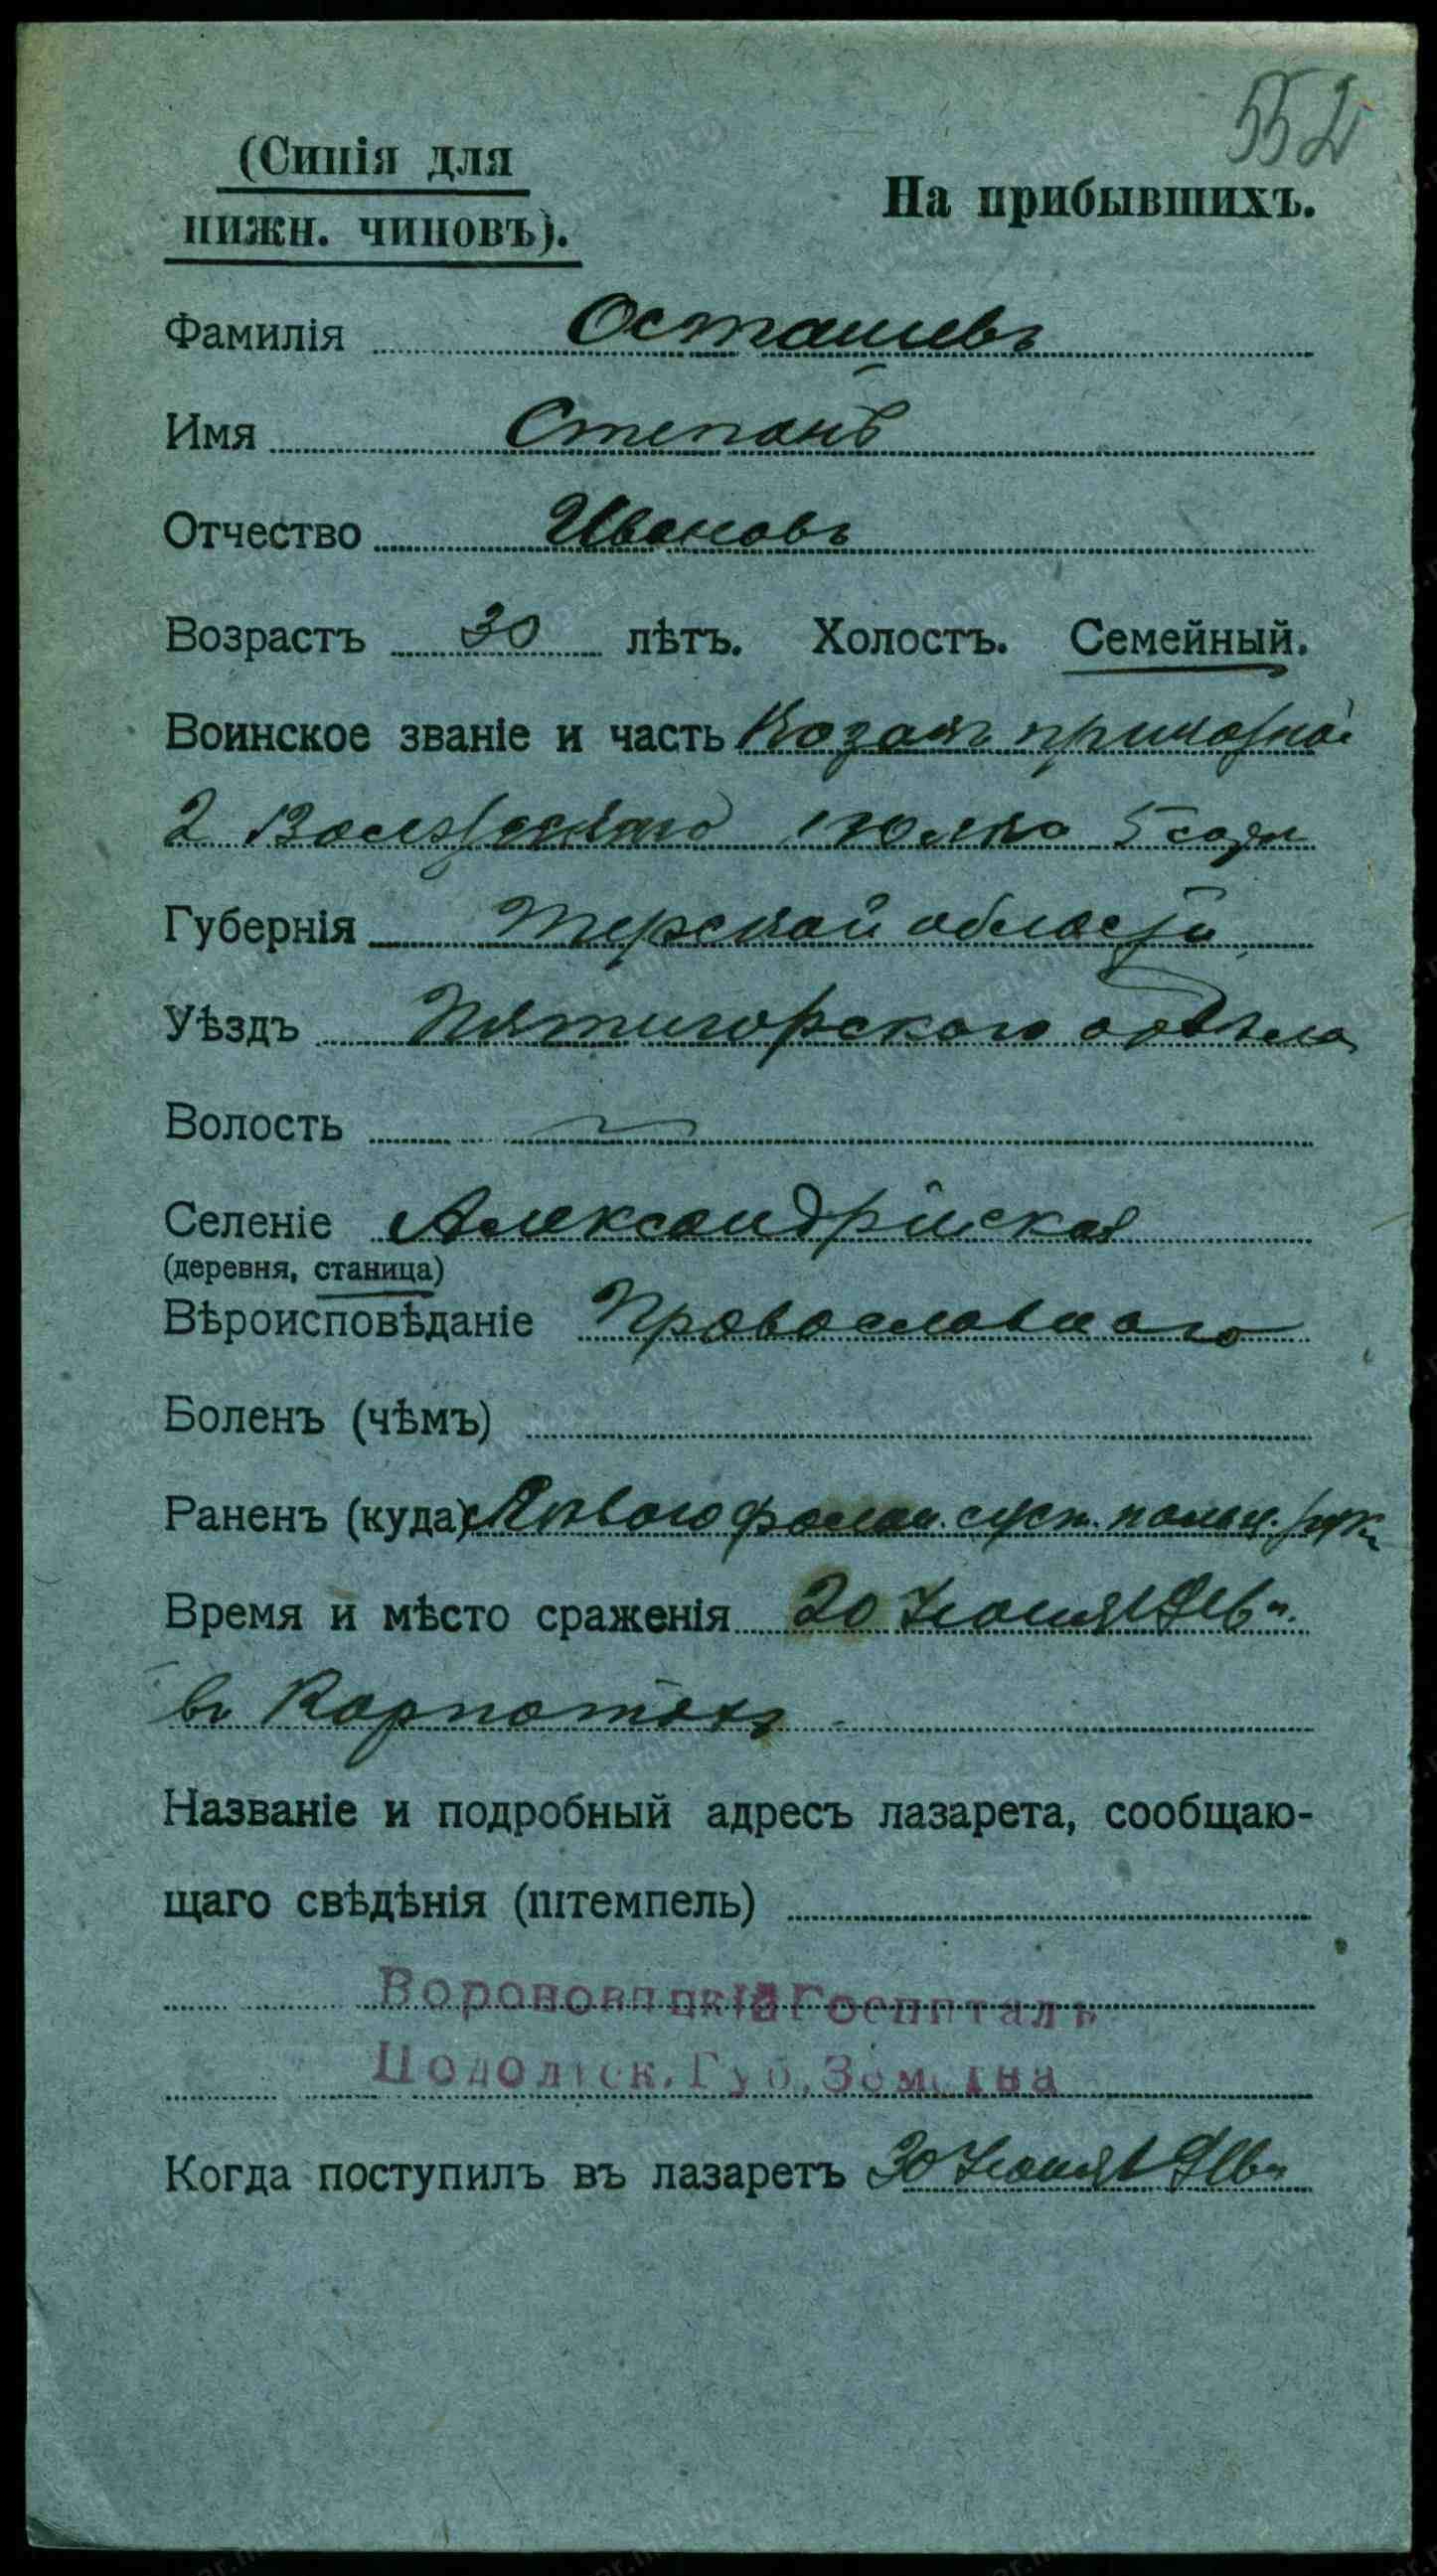 552
(Синія для
нижн. чиновъ).
На прибывшихъ.
Фамилія Осташевъ
Имя Степанъ
Отчество Ивановъ
Возрастъ 30 лѣтъ. Холостъ. Семейный.
Воинское званіе и часть Козакъ
2 полка 5 сотн
Губернія Терской области
Уѣздъ Пятигорского отдѣла
Волость
Селеніе Александрійская
(деревня, станица)
Вѣроисповѣданіе Православного
Боленъ (чѣмъ)
Раненъ (куда)
Время и мѣсто сраженія 20 Іюня 1916 г.
въ Карпатахъ
Названіе и подробный адресъ лазарета, сообщаю-
щаго свѣдѣнія (штемпель)
Вороновицкій Госпиталь
Подольск. Губ. Земства
Когда поступилъ въ лазаретъ 30 Іюня 1916 г